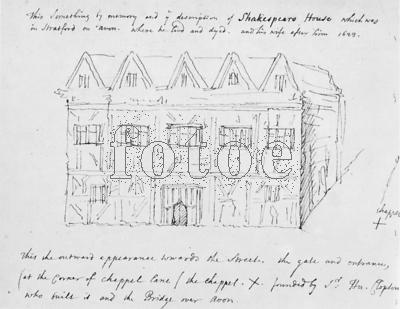 This Something by memory and ye description of Shakespears House which was
in Stratford on avon. where he livd and dyed. and his wife after him 1623.
fotoe
chappel
This the outward appearance towards the Street. the gate and entrance,
(at the Corner of chappel lane / the chappel. X. founded by Sr. Hu. Clopton
who built it and the Bridge over avon.